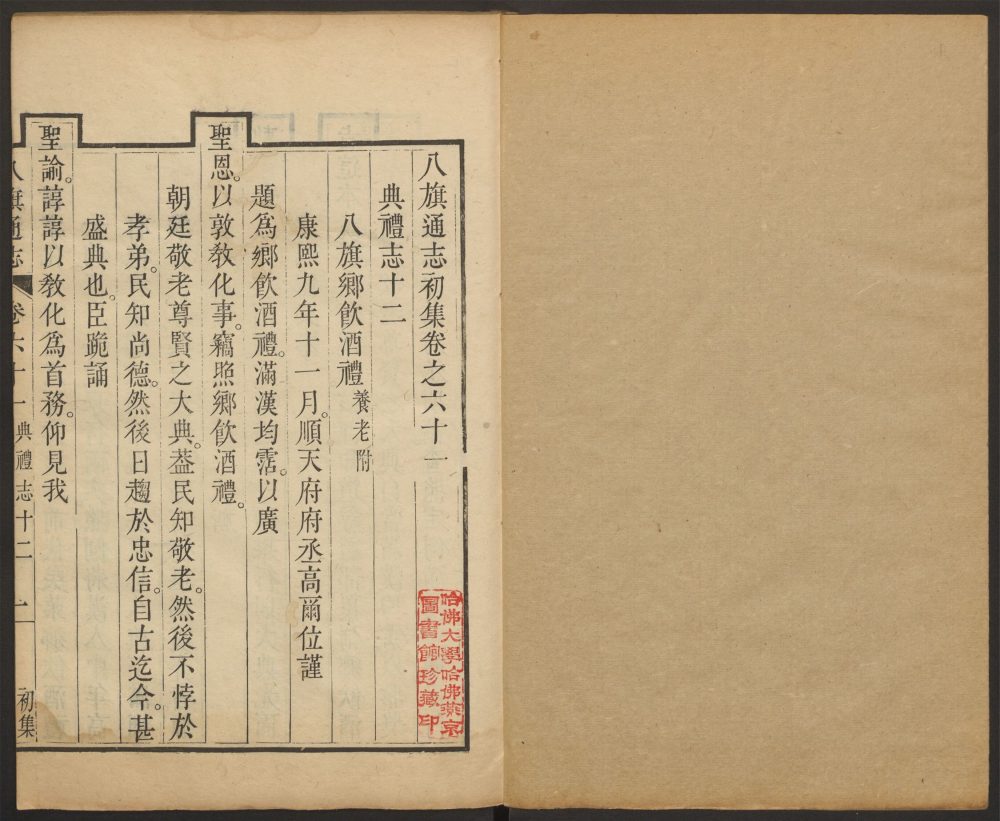 八旗通志初集卷之六十一
典禮志十二
八旗鄉飲酒禮養老附
康熙九年十一月。順天府府丞高爾位謹
題爲鄉飲酒禮。滿漢均霑。以廣
聖恩。以敦敎化事。竊照鄉飲酒禮。
朝廷敬老尊賢之大典。葢民知敬老。然後不悖於
孝弟。民知尚德。然後日趨於忠信。自古迄今。甚
盛典也。臣跪誦
聖諭。諄諄以敎化爲首務。仰見我
八旗通志 卷六十一 典禮志十二 一 初集
哈佛大學哈佛燕京
圖書館珍藏印